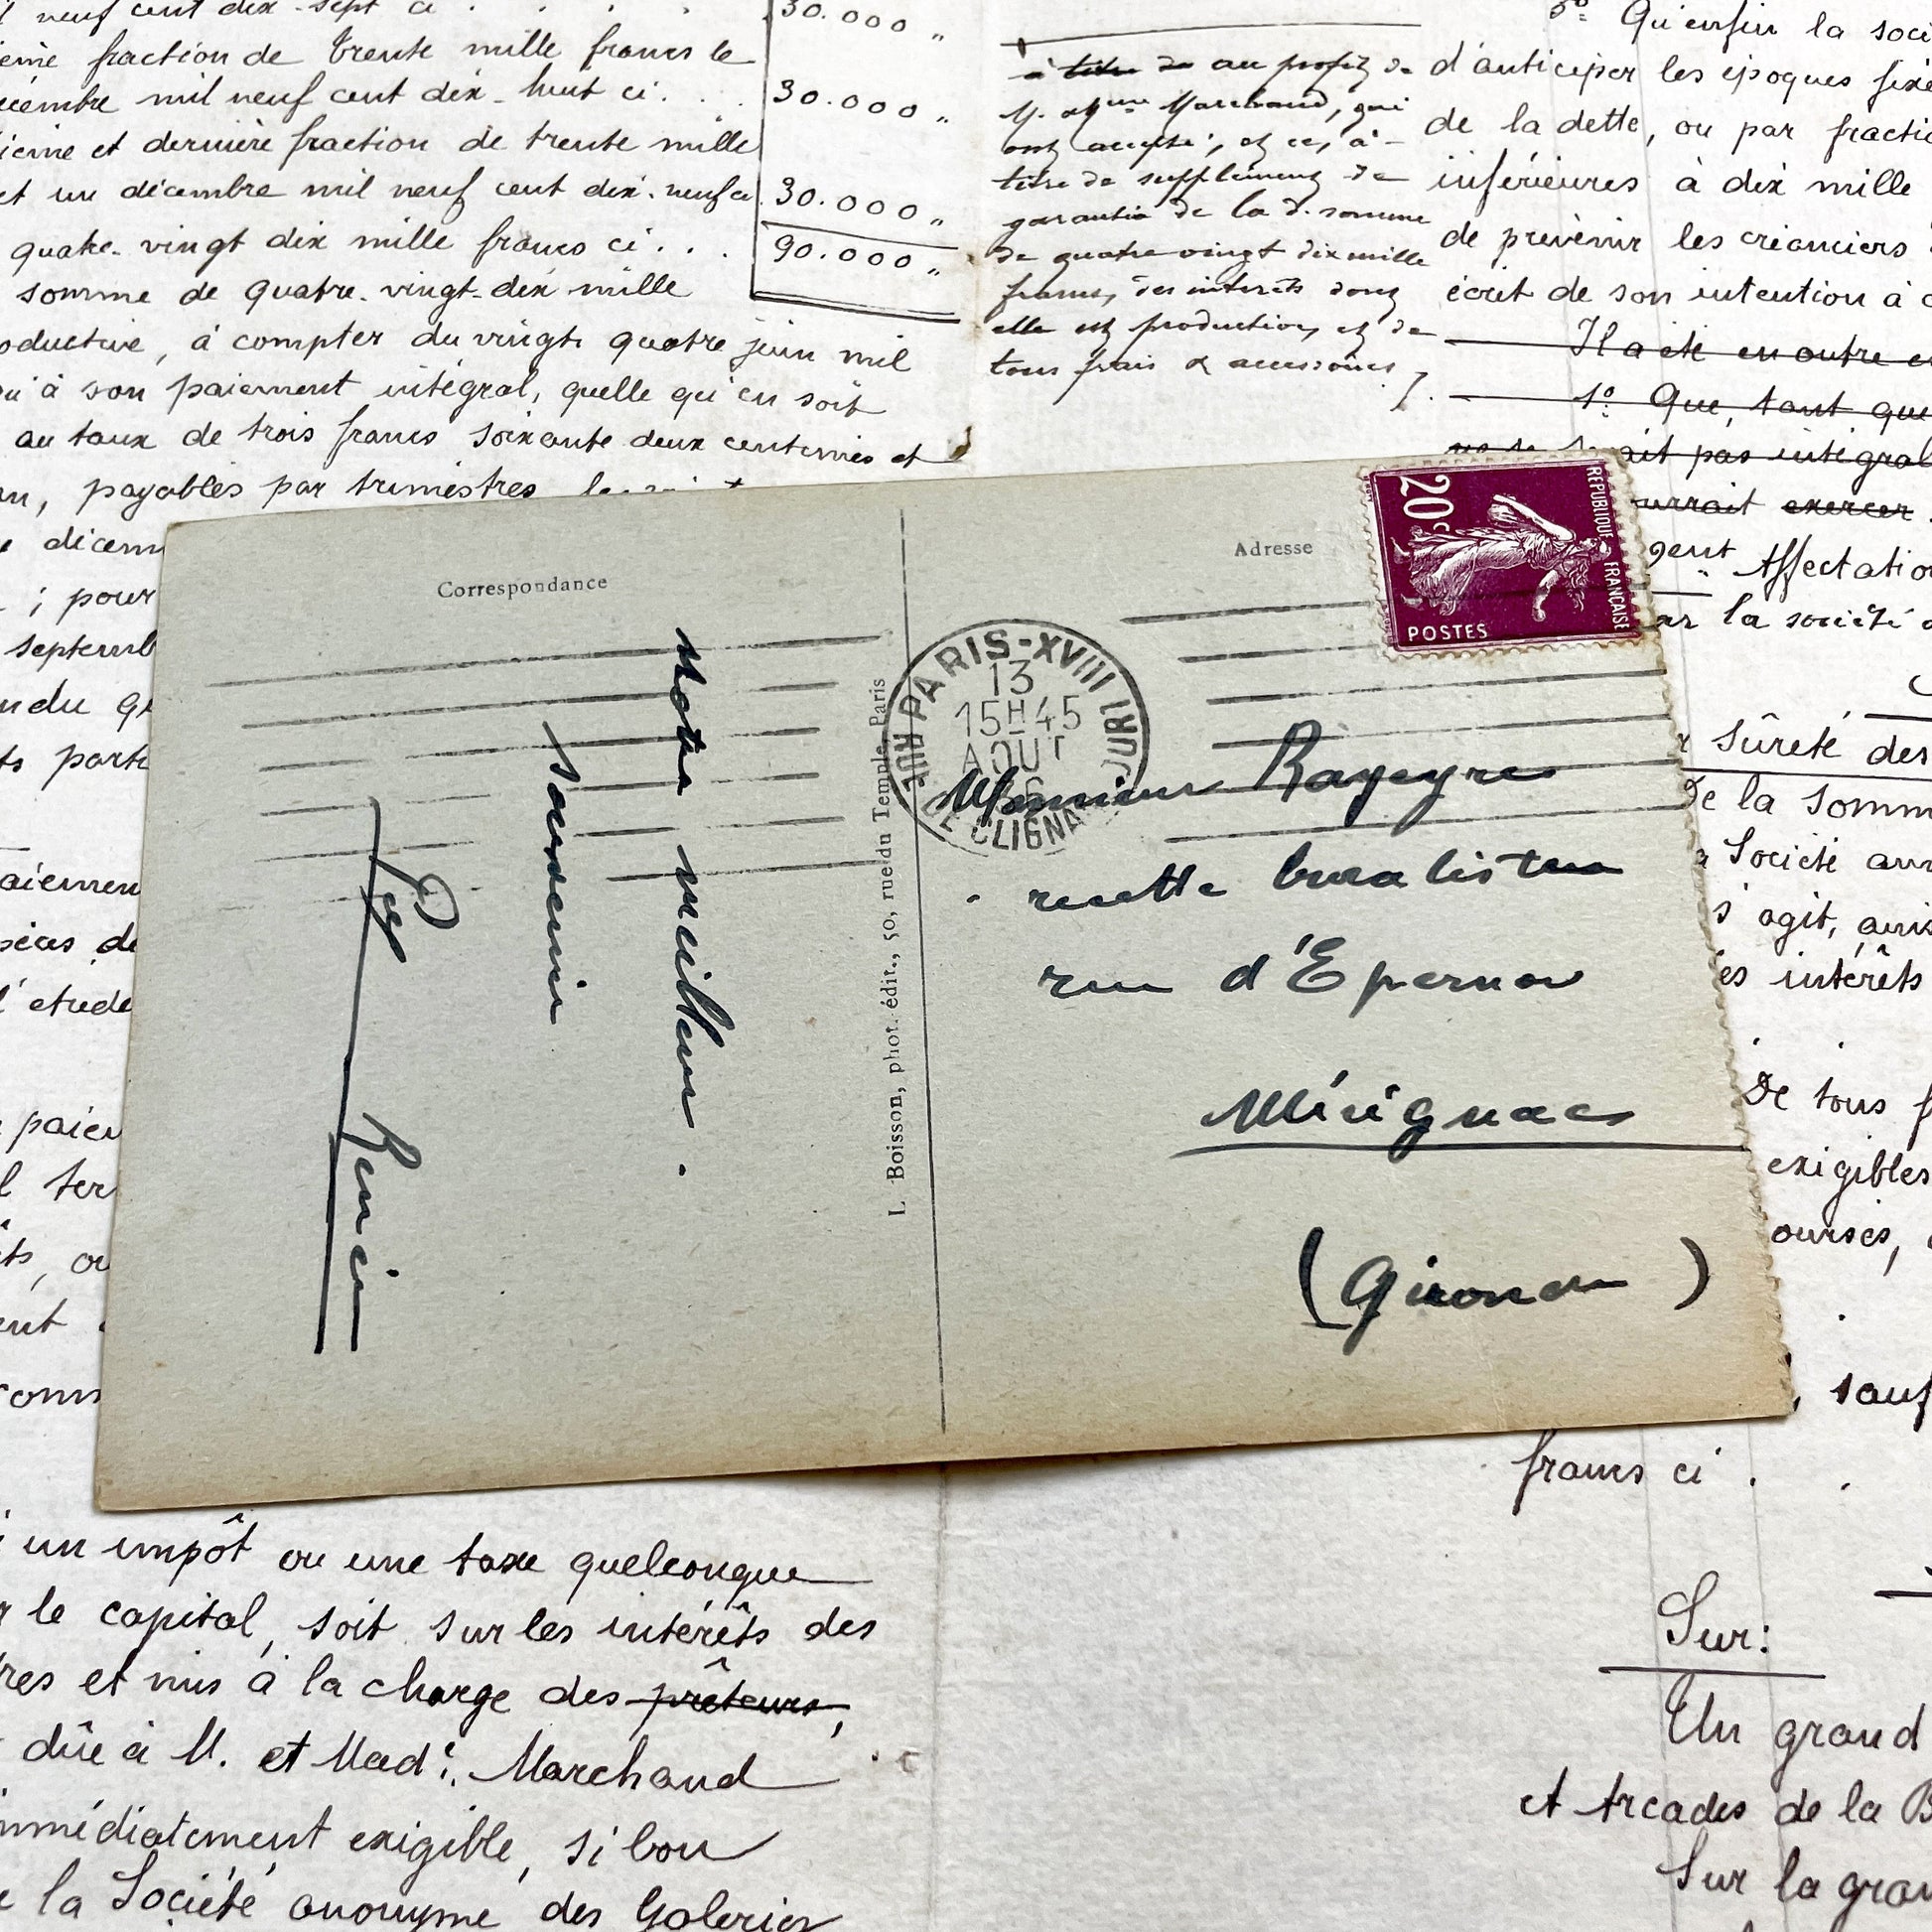 neuf cent dix-sept ci . . . . 30.000 "
fraction de trente mille francs le
mil neuf cent dix-huit ci . . . 30.000 "
et dernière fraction de trente mille
et un décembre mil neuf cent dix-neuf ci 30.000 "
quatre-vingt dix mille francs ci . . . 90.000 "
somme de quatre-vingt-dix mille
à compter du vingt quatre juin mil
à son paiement intégral, quelle qu'en soit
au taux de trois francs soixante deux centimes et
payables par trimestres
; pour
au profit de
M. et Mme Marchand, qui
ont accepté, et ce, à
titre de supplément de
garantie de la d. somme
de quatre-vingt dix mille
francs, des intérêts dont
elle est productive, et de
tous frais & accessoires
5° Qu'enfin la soci
d'anticiper les époques fixé
de la dette, ou par fracti
inférieures à dix mille
de prévenir les créanciers
écrit de son intention à
Il a été en outre
1° Que, tant que
pas intégral
exercer
Affectation
la société
sûreté des
De la somm
Société
s'agit,
es intérêts
De tous f
exigibles
ourses,
, sauf
francs ci . .
Correspondance
Notre meilleur
souvenir
Renier
L. Boisson, phot. édit., 50, rue du Temple, Paris
Adresse
REPUBLIQUE FRANÇAISE
20c
POSTES
PARIS-XVIII
13
15H45
AOUT
RUE DE CLIGNA
Monsieur Rayeyre
recette buraliste
rue d'Epernon
Mérignac
(Gironde)
un impôt ou une taxe quelconque
le capital, soit sur les intérêts des
et mis à la charge des prêteurs,
dûe à M. et Made. Marchand
immédiatement exigible, si bon
la Société anonyme des Galeries
Sur:
Un grand
et Arcades de la B
Sur la gran